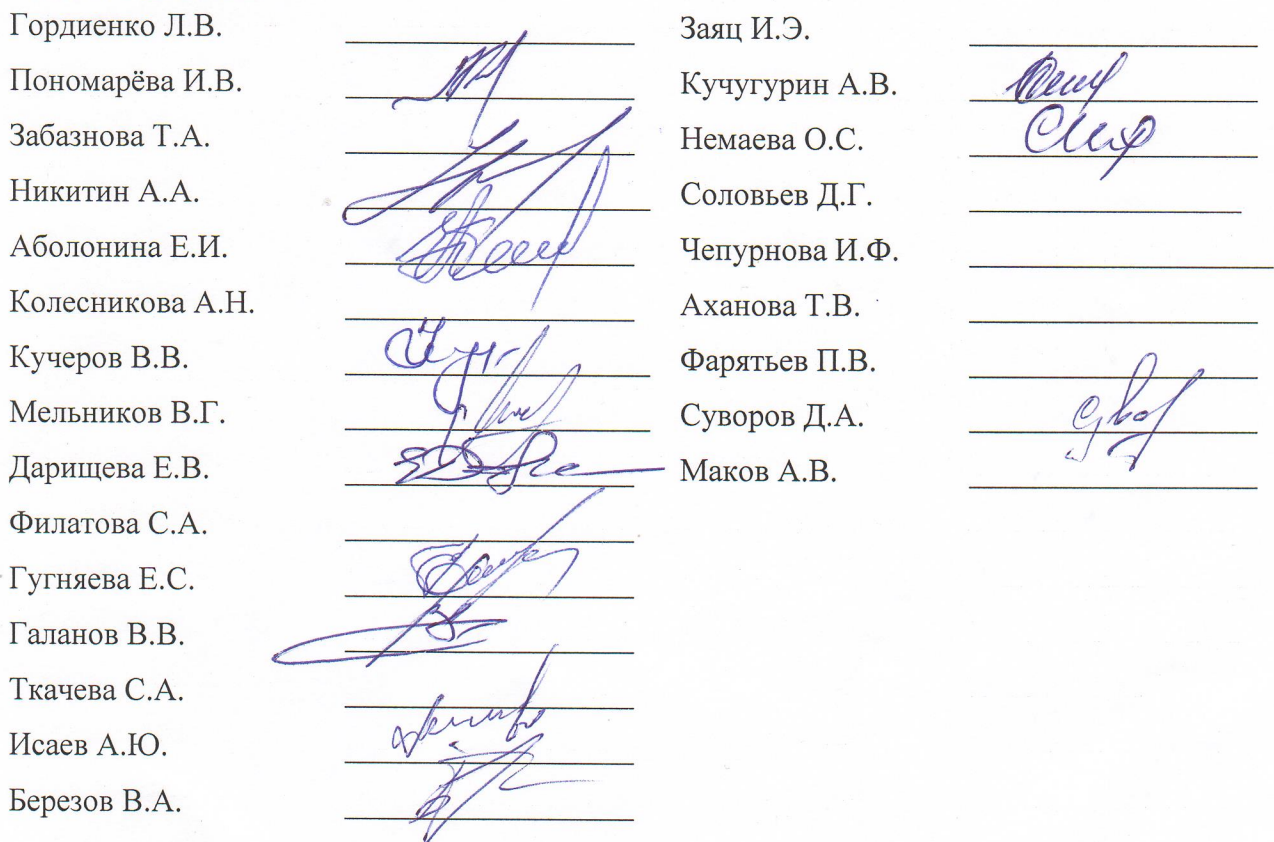 Гордиенко Л.В.
Пономарёва И.В.
Забазнова Т.А.
Никитин А.А.
Аболонина Е.И.
Колесникова А.Н.
Кучеров В.В.
Мельников В.Г.
Дарищева Е.В.
Филатова С.А.
Гугняева Е.С.
Галанов В.В.
Ткачева С.А.
Исаев А.Ю.
Березов В.А.
Заяц И.Э.
Кучугурин А.В.
Немаева О.С.
Соловьев Д.Г.
Чепурнова И.Ф.
Аханова Т.В.
Фарятьев П.В.
Суворов Д.А.
Маков А.В.